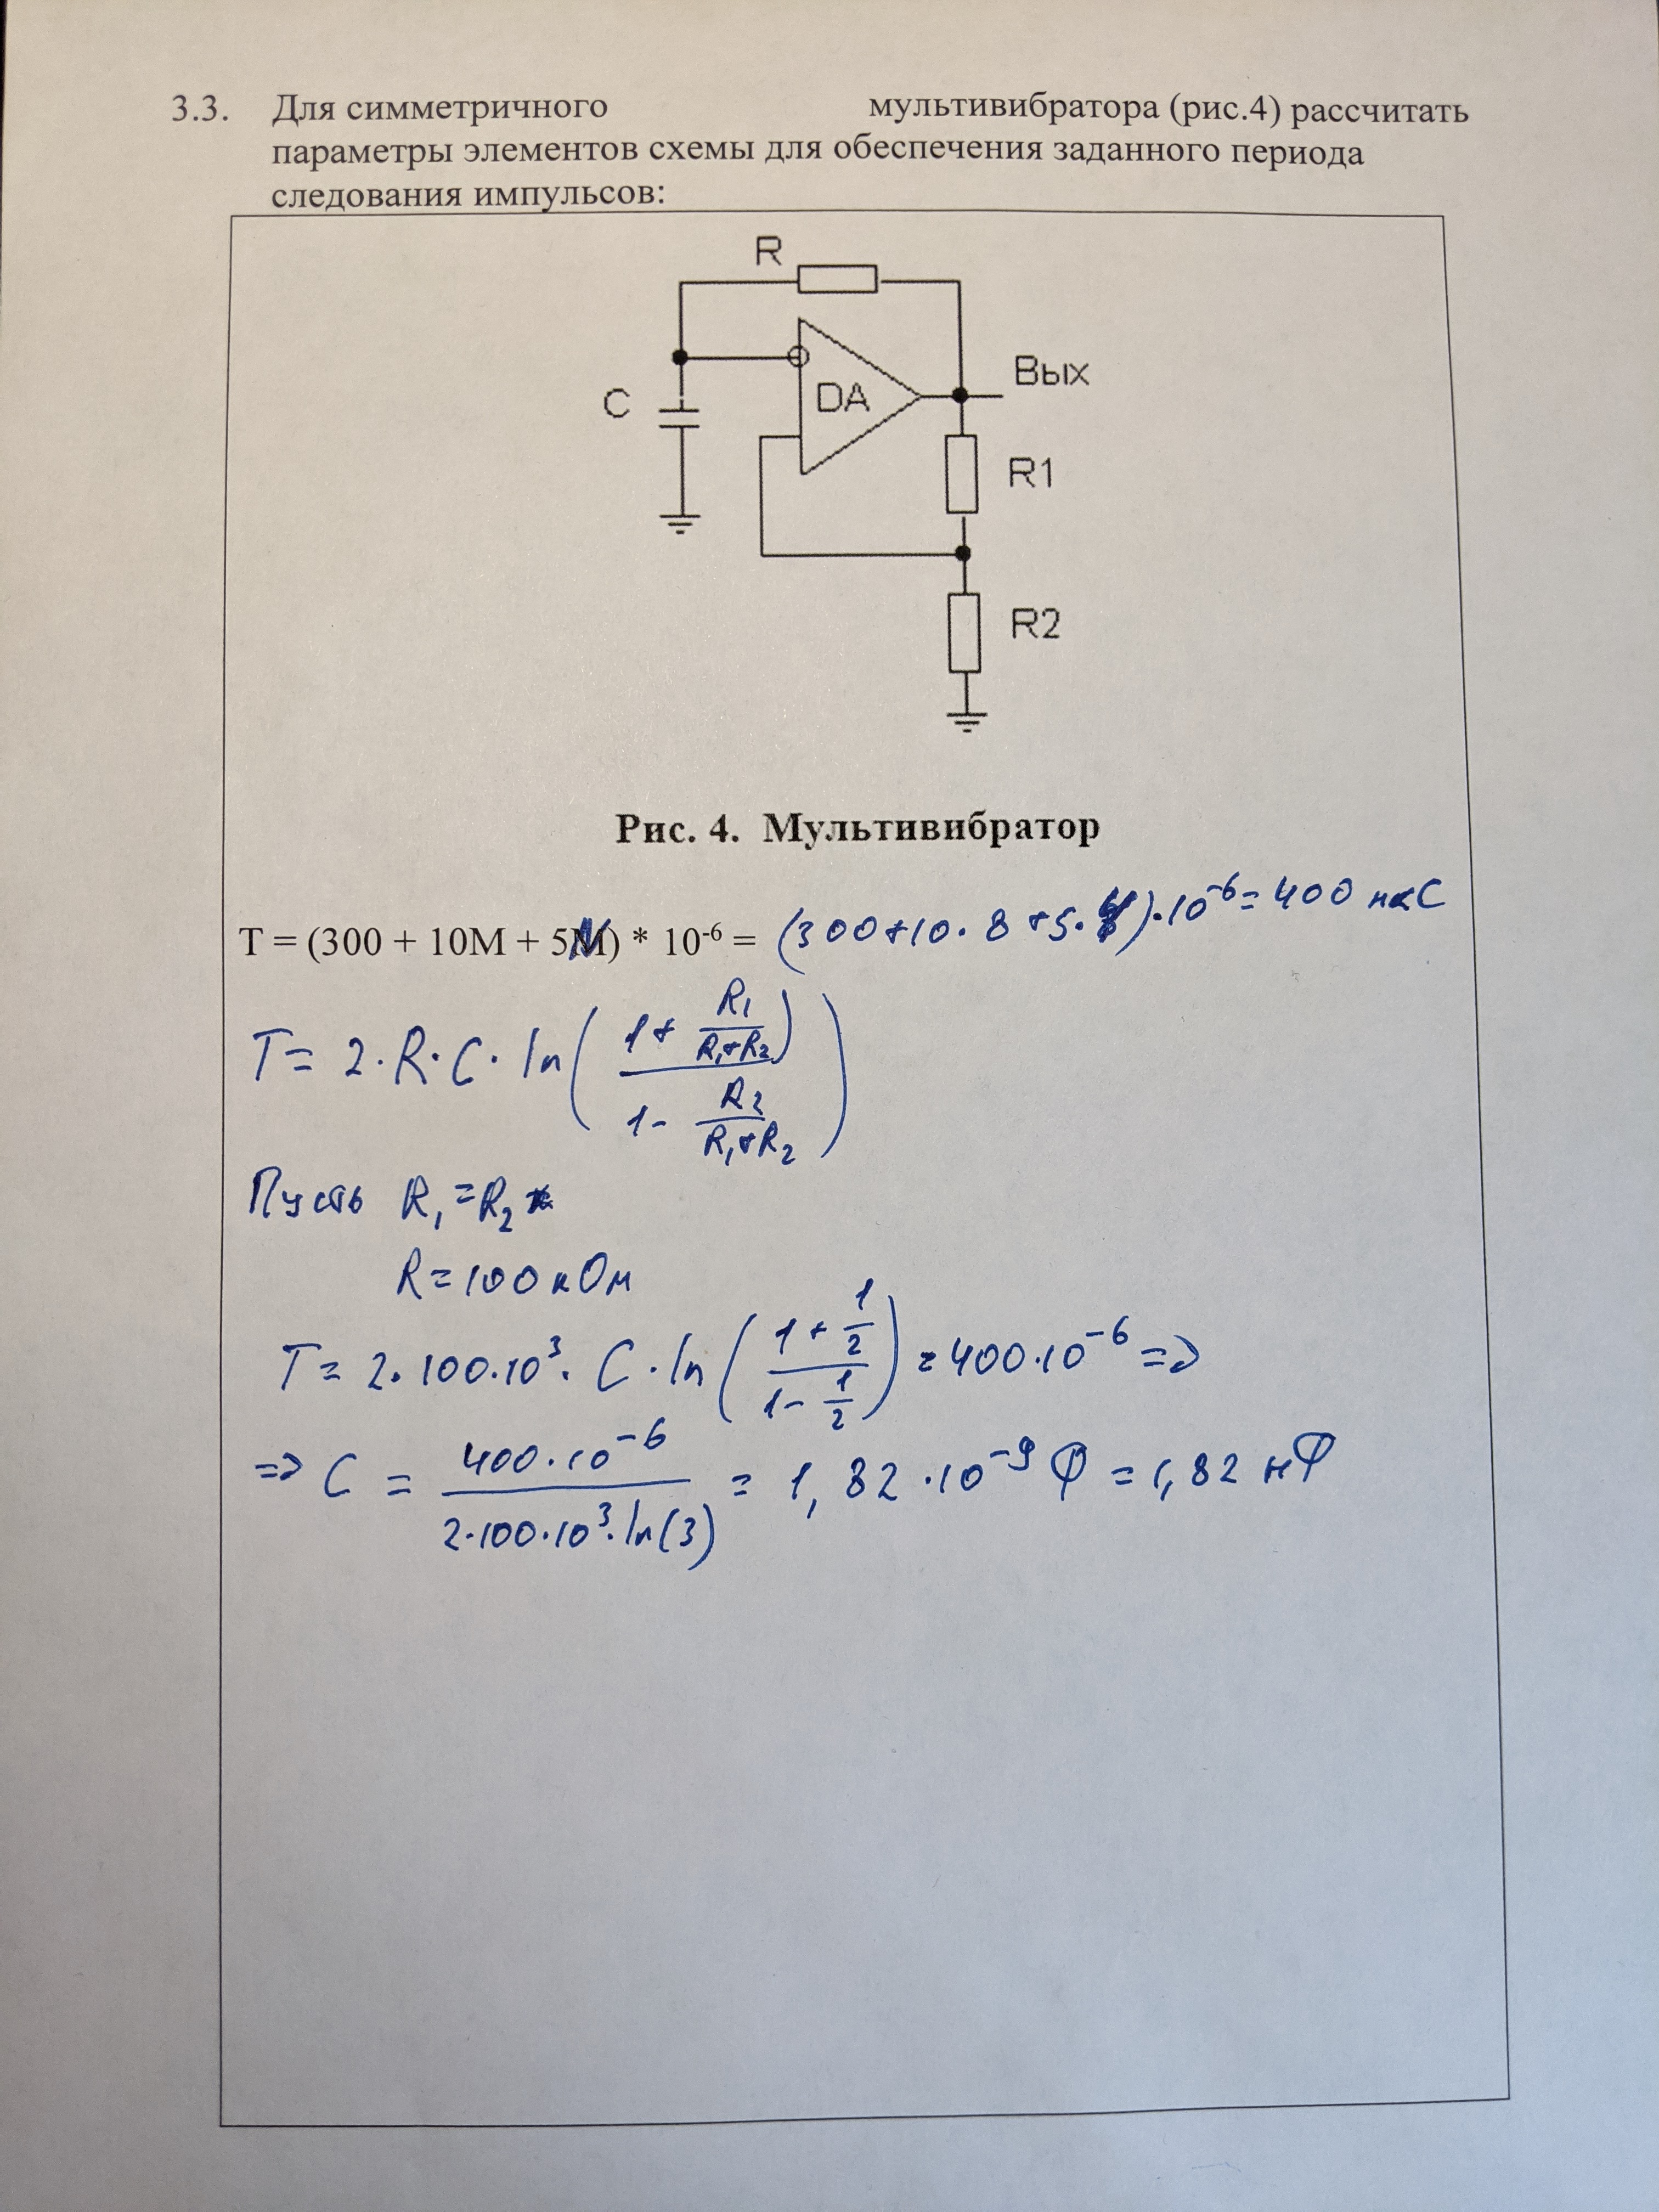 3.3. Для симметричного мультивибратора (рис.4) рассчитать
параметры элементов схемы для обеспечения заданного периода
следования импульсов:
R
C
DA
Вых
R1
R2
Рис. 4. Мультивибратор
T = (300 + 10M + 5N) * 10⁻⁶ = (300+10·8+5·4)·10⁻⁶=400 мкС
T = 2·R·C·ln((1+R₁/(R₁+R₂))/(1-R₂/(R₁+R₂)))
Пусть R₁=R₂
R=100кОм
T= 2·100·10³·C·ln((1+1/2)/(1-1/2))=400·10⁻⁶=>
=> C = 400·10⁻⁶/(2·100·10³·ln(3)) = 1,82·10⁻⁹Ф=1,82 нФ